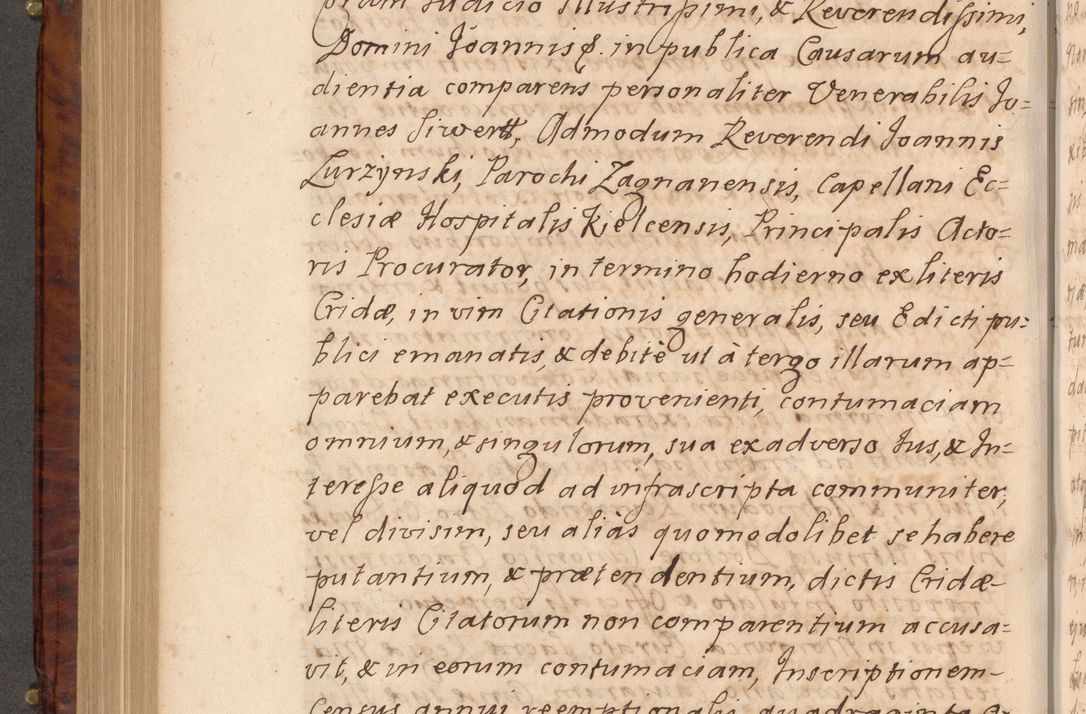 pram Judicio Illustrissimi, & Reverendissimi,
Domini Joannis &. in publica Causarum au=
dientia comparens personaliter Venerabilis Jo=
annes Siwertt, Admodum Reverendi Joannis
Zurzynski, Parochi Zagnanensis, Capellani Ec=
clesiæ Hospitalis Kielcensis, Principalis Acto=
ris Procurator, in termino hodierno ex literis
Cridæ, in vim Citationis generalis, seu Edicti pu=
blici emanatis, & debitè ut à tergo illarum ap=
parebat executis provenienti, contumaciam
omnium, & singulorum, sua ex adverso Jus, & In=
teresse aliquod ad infrascripta communiter,
vel divisim, seu aliàs quomodolibet se habere
putantium, & prætendentium, dictis Cridæ
literis Citatorum non comparentium accusa=
vit, & in eorum contumaciam, Inscriptionem
Census annui reemptionalis quadraginta